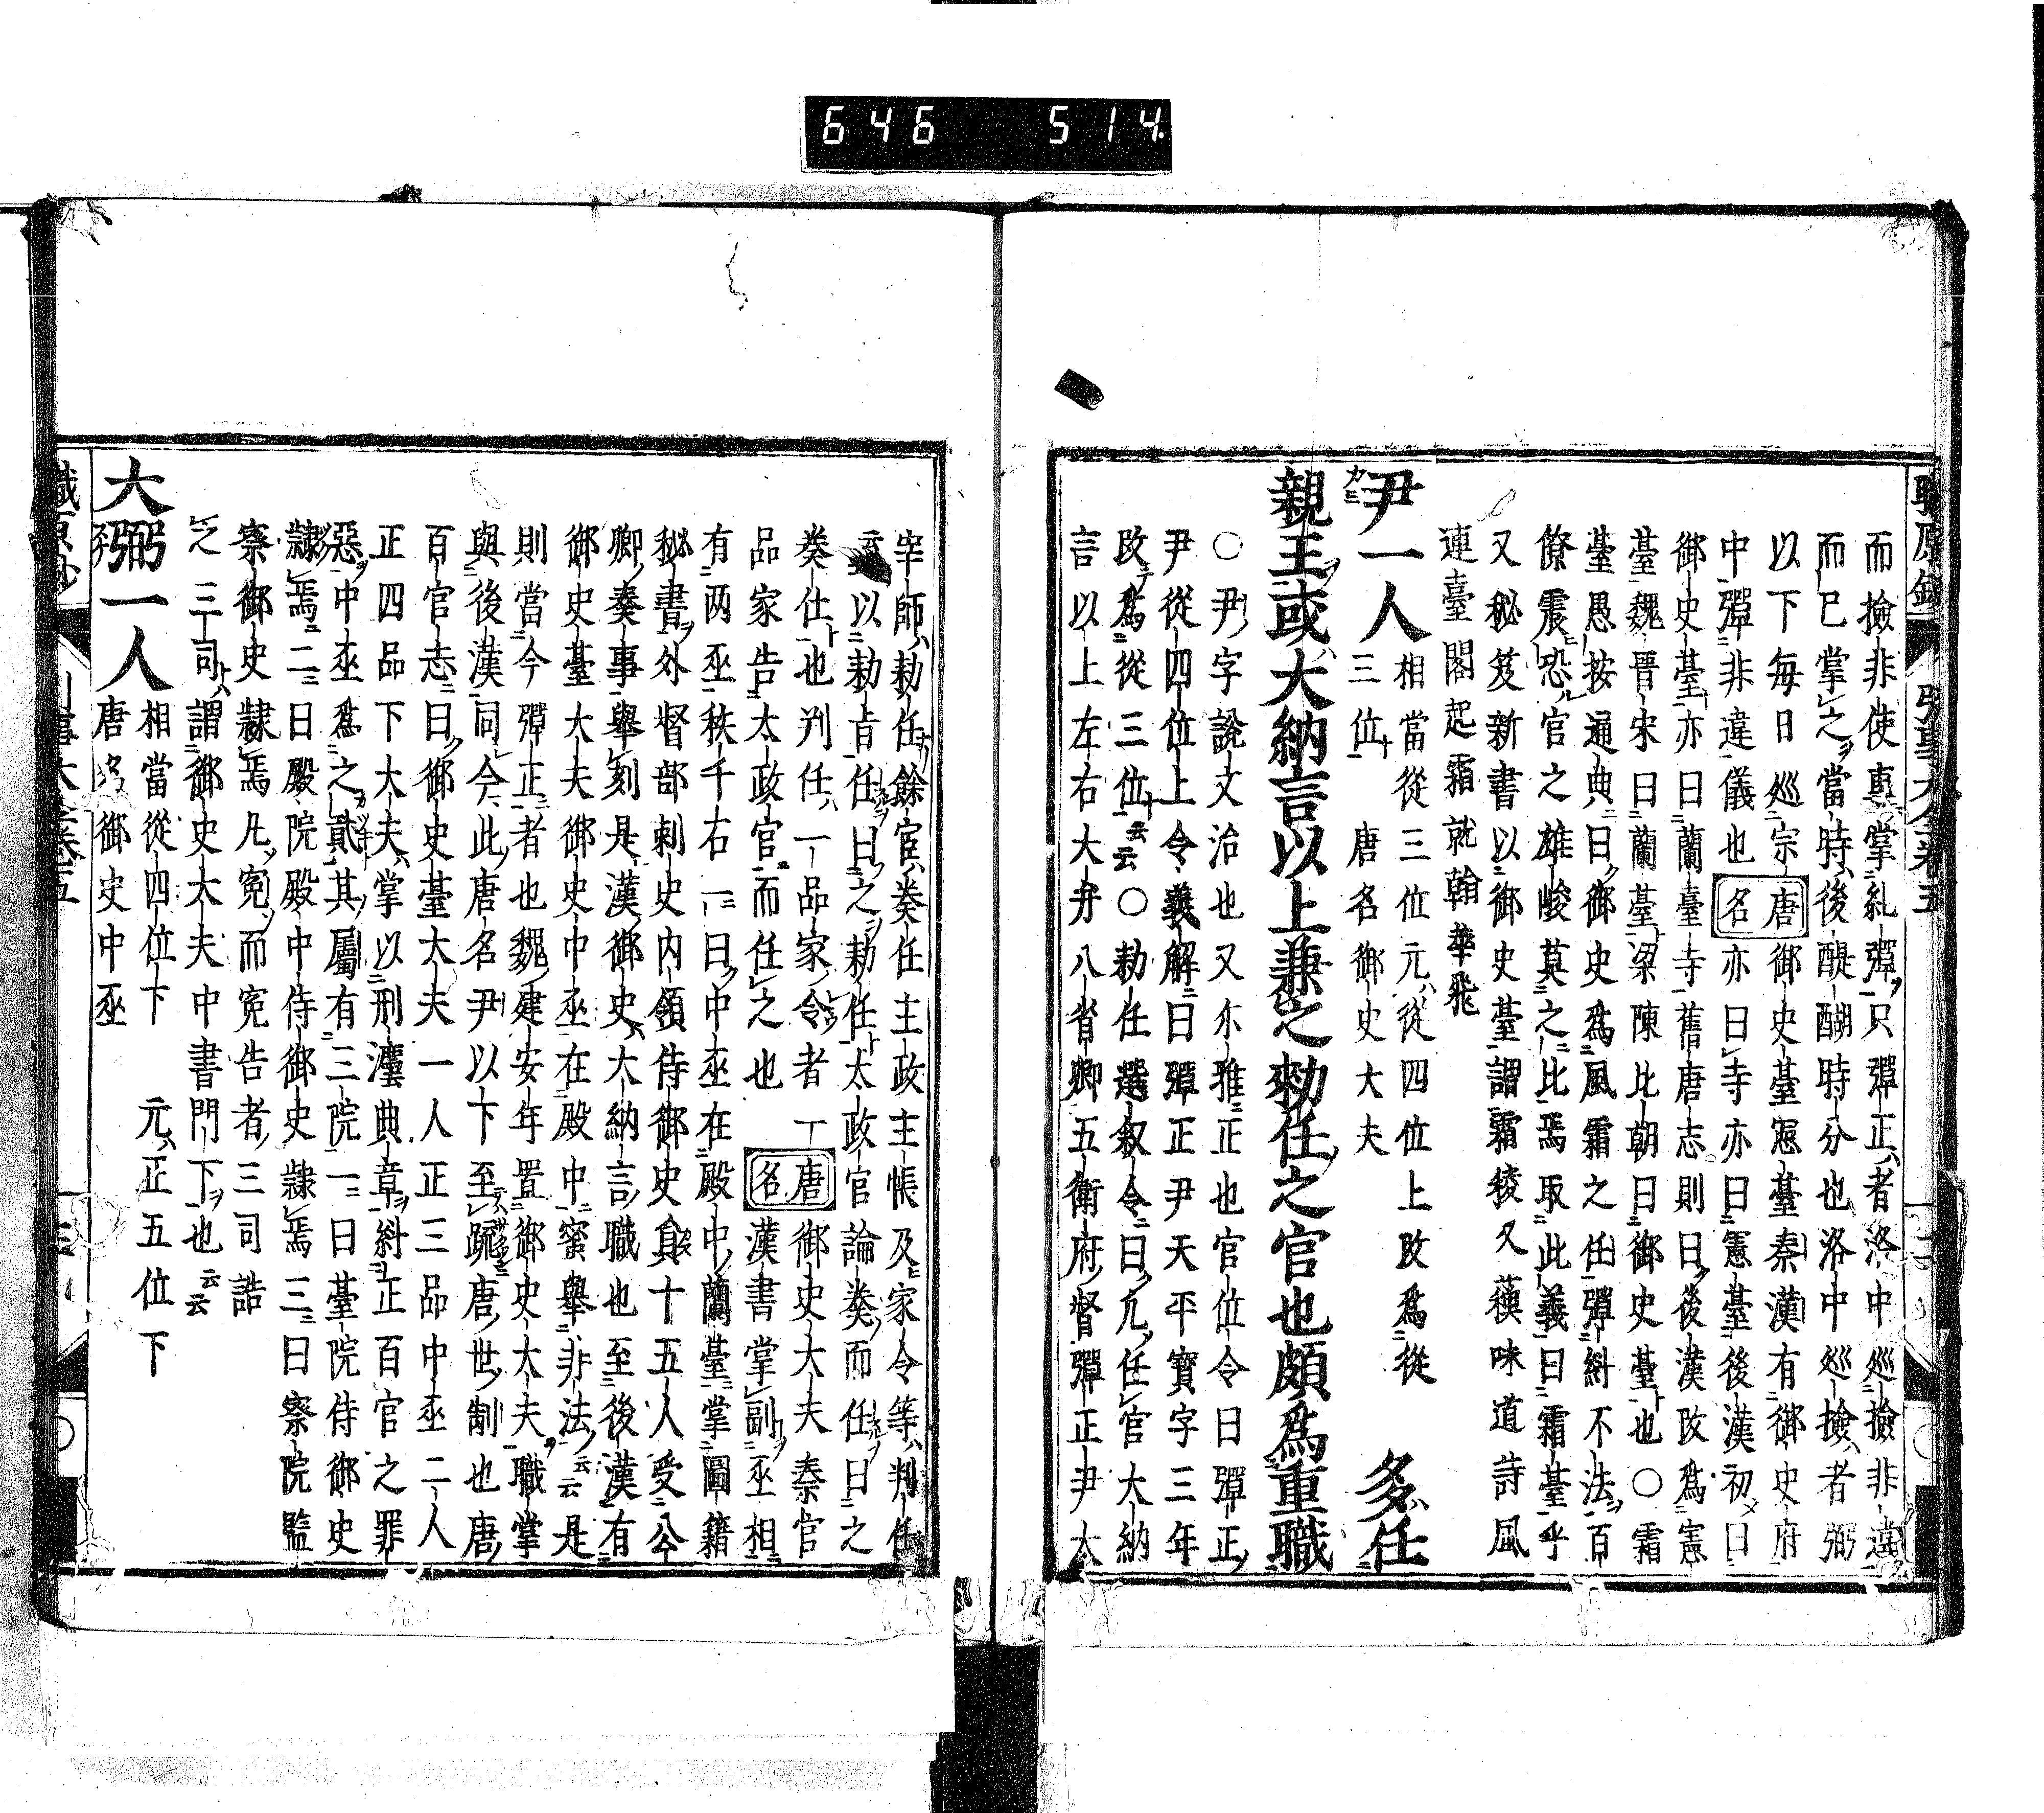 646 514.
而撿非使專掌糺彈只彈正者洛中巡撿非違
而已掌之當時後醍醐時分也洛中巡撿者弼
以下毎日巡宗唐御史臺憲臺秦漢有御史府
中彈非違儀也名亦曰寺亦曰憲臺後漢初曰
御史臺亦曰蘭臺寺舊唐志則曰後漢改為憲
臺魏晉宋曰蘭臺梁陳比朝曰御史臺也○霜
臺愚按通典曰御史為風霜之任彈糾不法百
僚震恐官之雄峻莫之比焉取此義曰霜臺乎
又秘笈新書以御史臺謂霜稜又蘓味道詩風
連臺閣起霜就翰華飛
尹一人相當從三位元從四位上改為從三位 唐名御史大夫 多任
親王或大納言以上兼之勅任之官也頗為重職
○尹字説文治也又尓雅正也官位令曰彈正
尹從四位上令義解曰彈正尹天平寳字三年
改為從三位云云○勅任選叙令曰凡任官大納
言以上左右大弁八省卿五衛府督彈正尹太
宰師勅任餘官奏任主政主帳及家令等判任
云以勅旨任曰之勅任太政官論奏而任曰之
奏仕也判任一品家令者一唐御史大夫秦官
品家告太政官而任之也名漢書掌副丞相
有两丞秩千右一曰中丞在殿中蘭臺掌圖籍
秘書外督部刺史内領侍御史員十五人受公
卿奏事舉刻是漢御史大納言職也至後漢有
御史臺大夫御史中丞在殿中蜜舉非法云云是
則當今彈正者也魏建安年置御史大夫職掌
與後漢同今此唐名尹以下至踈唐世制也唐
百官志曰御史臺大夫一人正三品中丞二人
正四品下大夫掌以刑灋典章糾正百官之罪
惡中丞為之貳其屬有三院一曰臺院侍御史
隷焉二曰殿院殿中侍御史隷焉三曰察院監
察御史隷焉凡寃而寃告者三司詰
之三司謂御史大夫中書門下也云云
大弼一人相當從四位下 元正五位下
唐名御史中丞